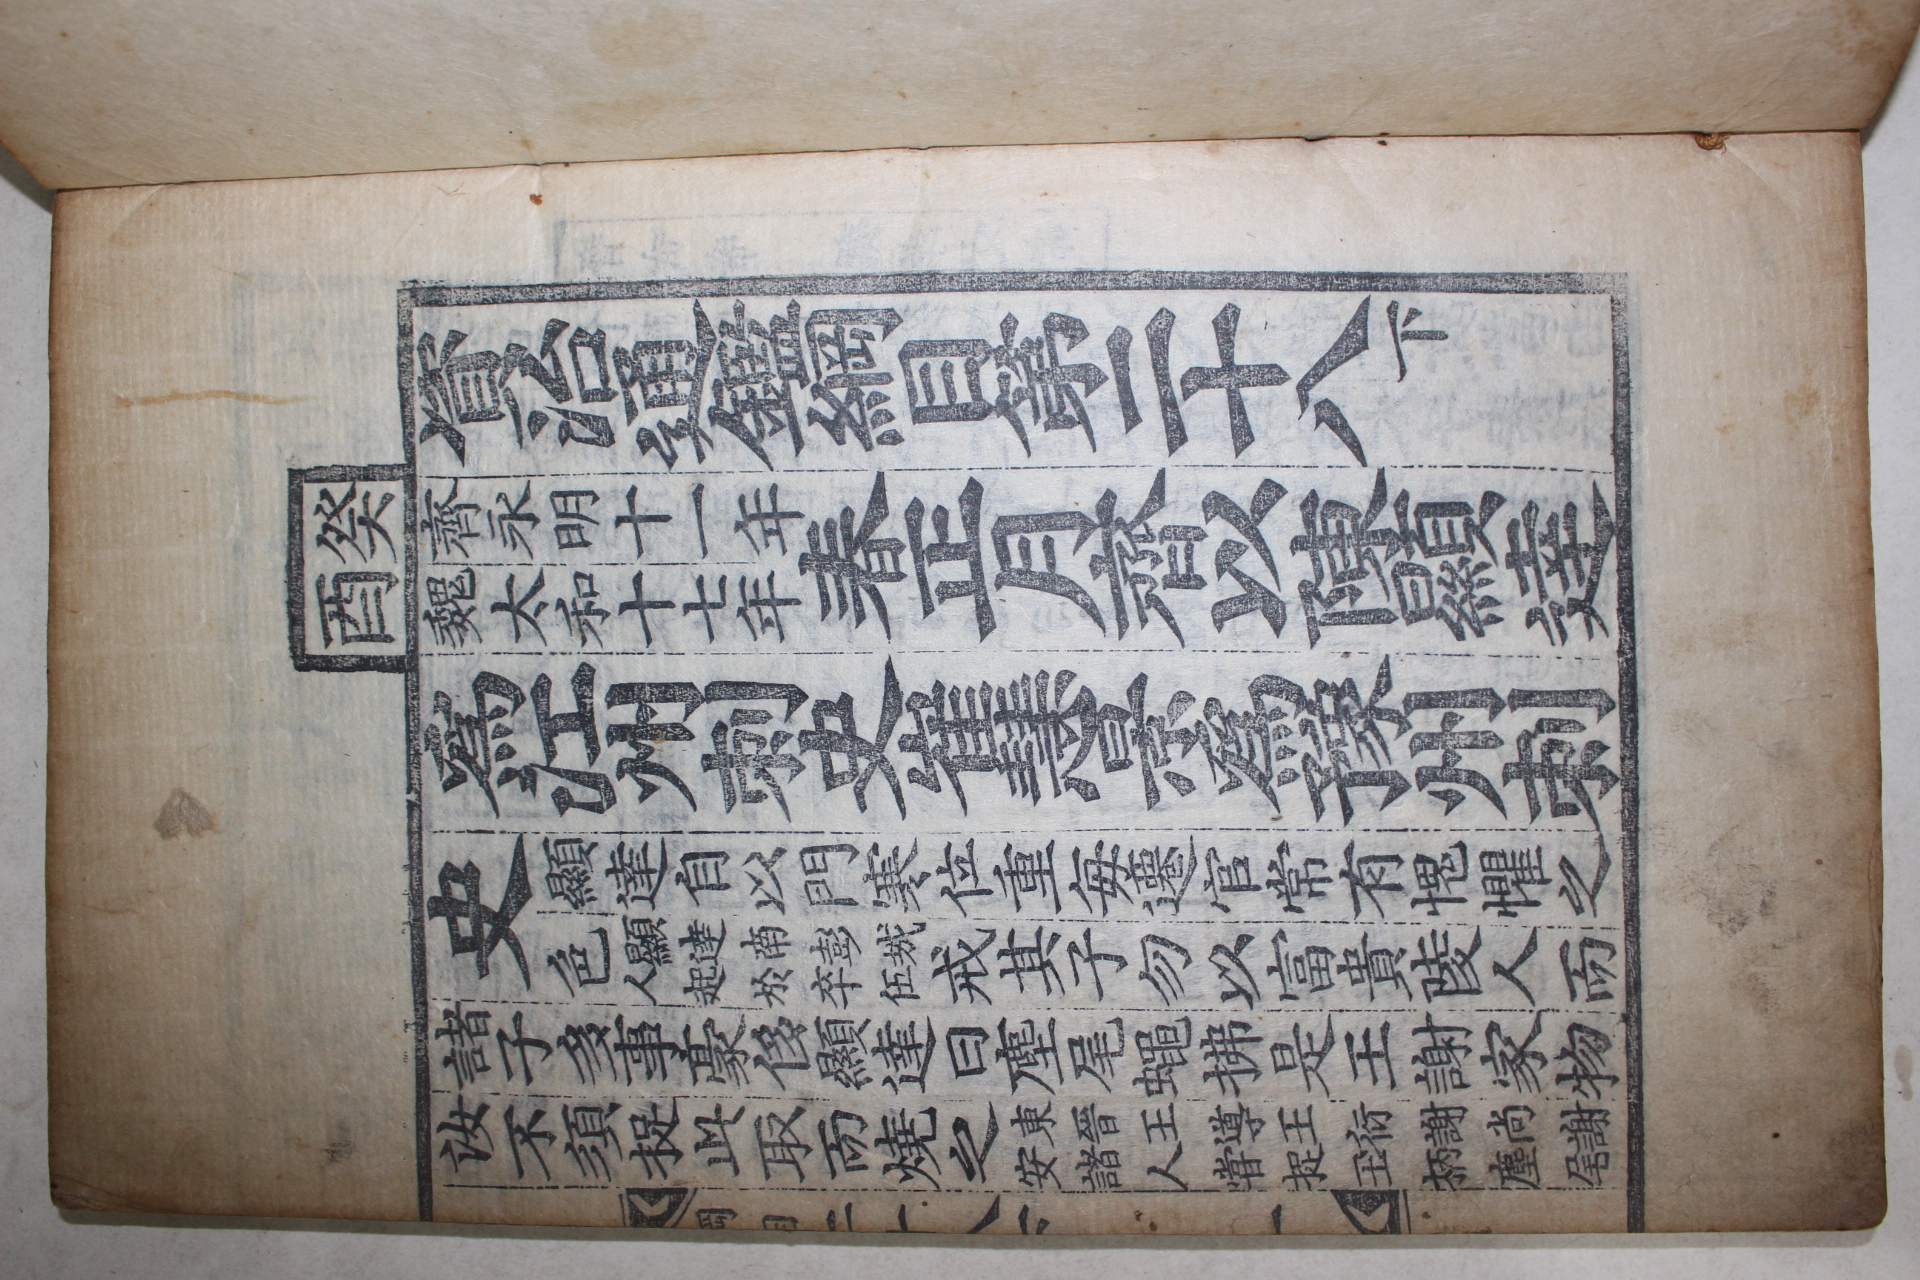 癸
酉
資治通鑑綱目第二十八下
齊永明十一年
魏太和十七年
春正月齊以陳顯達
爲江州刺史崔慧景爲豫州刺
史
顯達自以門寒位重每遷官常有愧懼之
色
顯達南彭城
人起於卒伍
戒其子勿以富貴陵人而
諸子多事豪侈顯達曰麈尾蠅拂是王謝家物
汝不須捉此取而燒之
東晉王導王衍謝尚謝
安諸人嘗捉玉柄麈尾
綱目二十八下
一